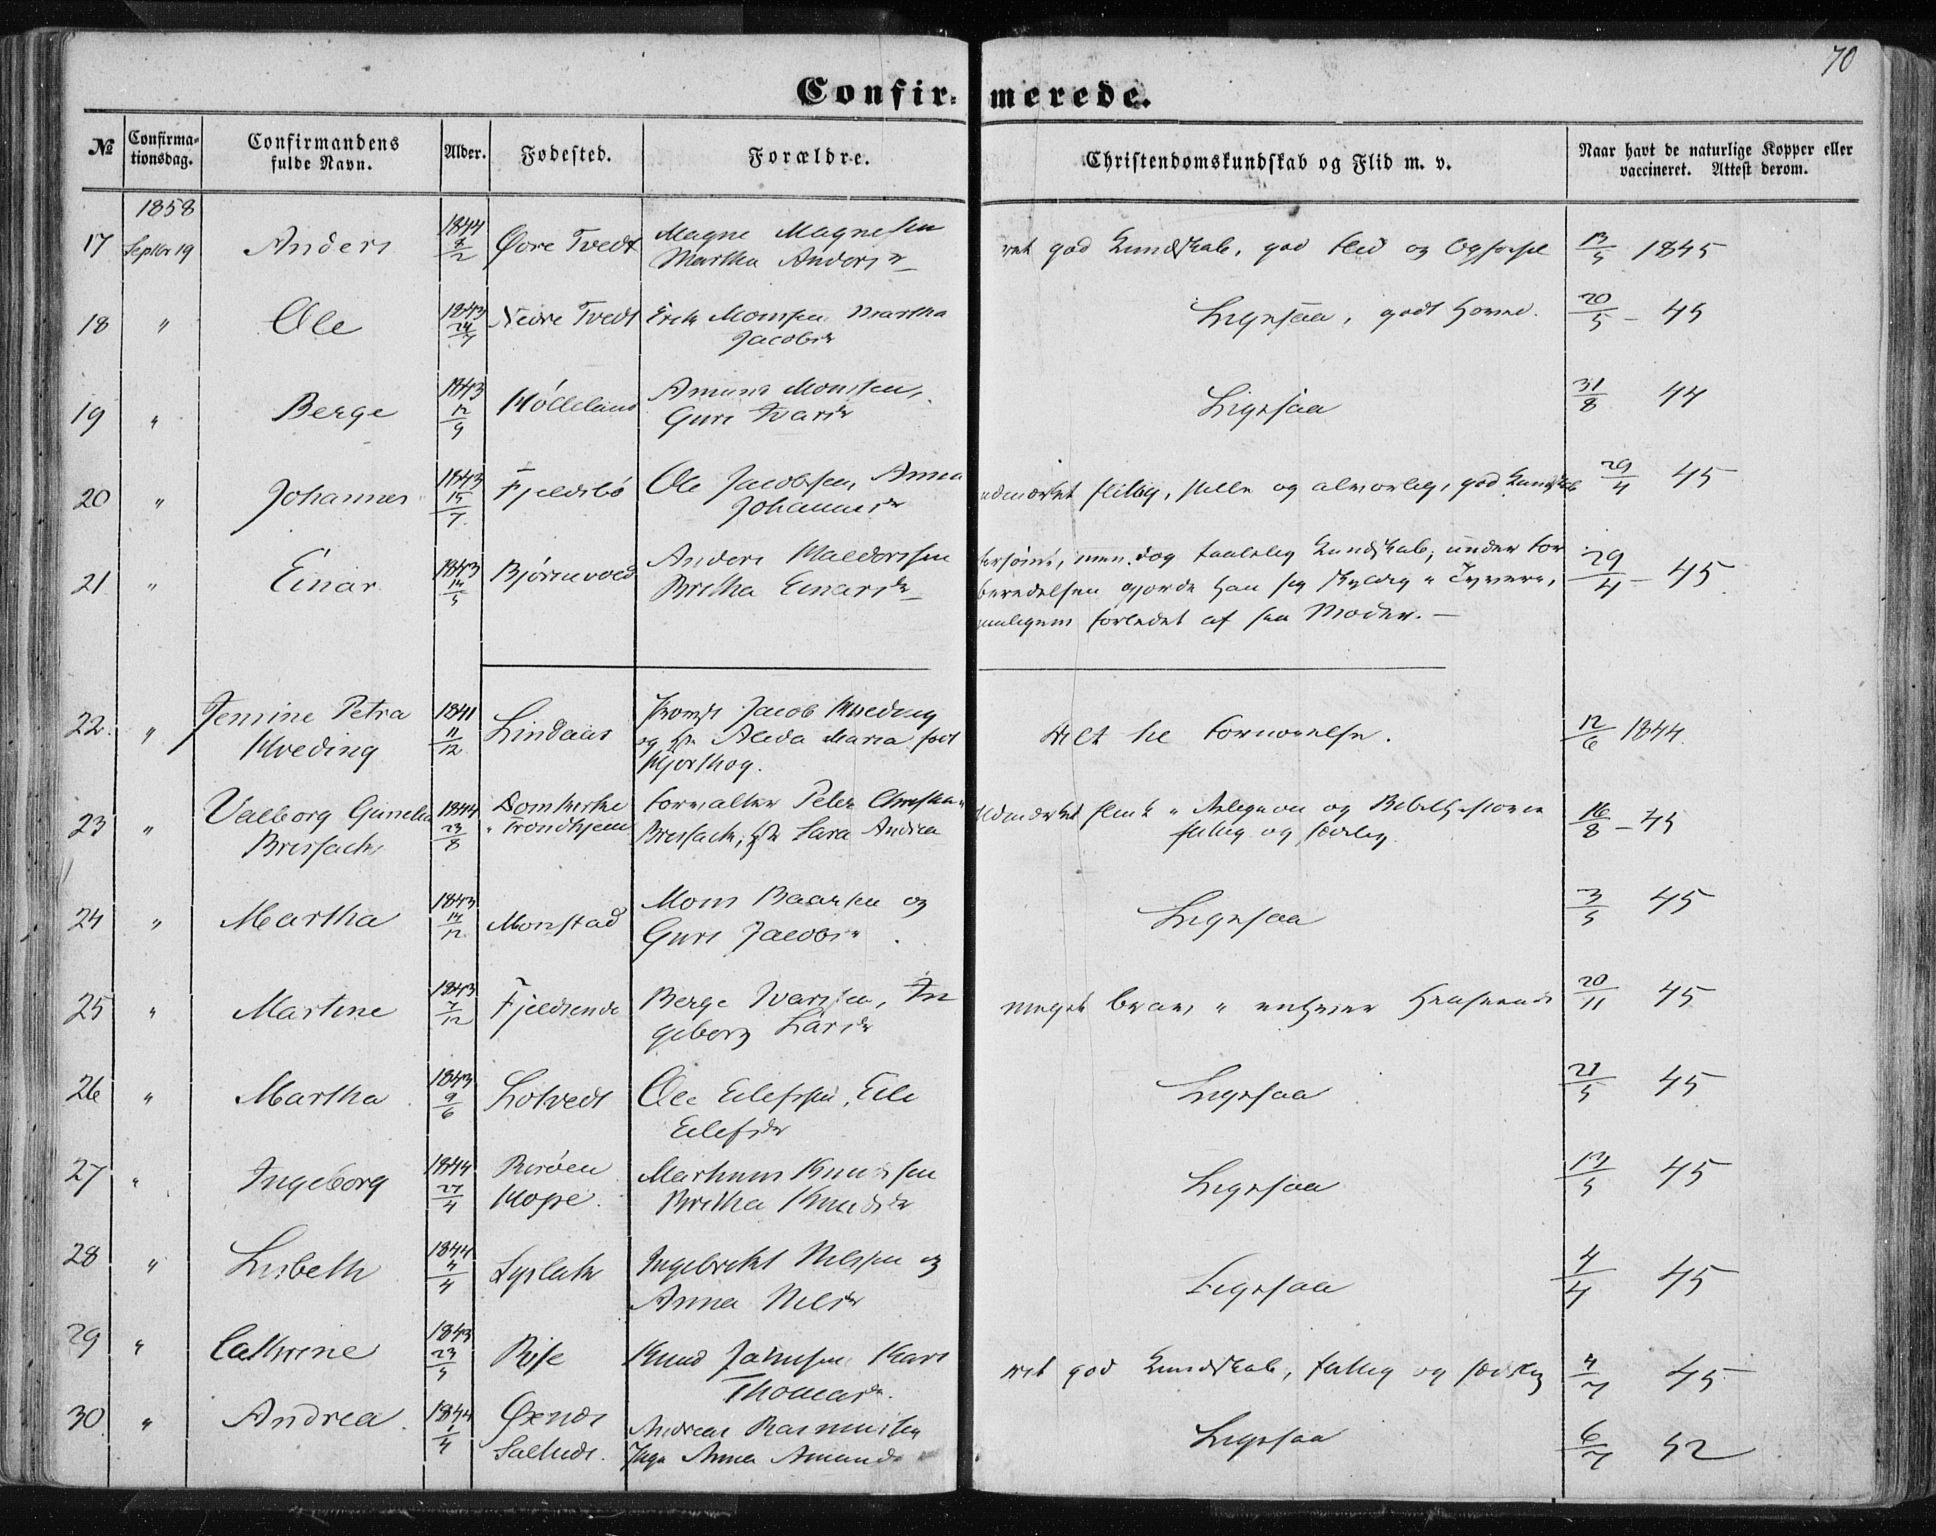 70
Confir- merede.
№ Confirma-tionsdag. Confirmandens fulde Navn. Alder. Fødested. Forældre. Christendomskundskab og Flid m. v. Naar havt de naturlige Kopper eller vaccineret. Attest derom.
1858
17 Septbr 19 Anders 1844 8/2 Øvre Tvedt Magne Magnesen Martha Andersdr ret god Kundskab, god Flid og Opførsel 13/5 1845
18 " Ole 1843 24/7 Nedre Tvedt Erik Monsen Martha Jacobsdr Ligesaa, godt 20/5 - 45
19 " Berge 1843 12/9 Hølleland Amund Monsen, Guri Ivarsdr Ligesaa 31/8 44
20 " Johannes 1843 15/7 Fjeldsbø Ole Jacobsen, Anna Johannesdr udmærket flittig, stille og alvorlig, god Kundskab 29/4 45
21 " Einar 1843 14/5 Bjørnevold Anders Haldorsen Britha Einarsdr forsømt, men dog taalelig Kundskab, under For
beredelsen gjorde han sig skyldig i Tyverie,
forledet af sin Moder. — 29/4 - 45
22. " Jensine Petra Kreding 1841 11/12 Lindaas Provst Jacob Kreding og Hr Alida Maria født Hjorthog. Alt til Fornøielse. 12/6 1844
23 " Valborg Gunelia Bressach 1844 23/8 Domkirke i Trondhjem Forvalter Peter Christian Bressach, Hr Sara Andrea Udmærket flink i Religion og Bibelhistorie flittig og sædelig 16/8 - 45
24 " Martha 1843 14/12 Monstad Mons Baarsen og Guri Jacobsdr Ligesaa 3/5 45
25 " Martine 1843 7/12 Fjeldsende Berge Ivarsen, In
geborg Larsdr meget brav i enhver Henseende 20/11 45
26 " Martha 1843 9/6 Lotvedt Ole Eilefsen, Eli Eilefsdr Ligesaa 21/5 45
27 " Ingeborg 1844 27/4 Risøen Hope. Markuus Knudsen Britha Knudsdr Ligesaa 13/5 45
28 " Lisbeth 1844 4/4 Syslak Ingebrikt Nilssen og Anna Nilsdr Ligesaa 4/4 45
29 " Cathrine 1843 23/5 Rise Knud Johnsen Kari Thomasdr. ret god Kundskab, flittig og sædelig 4/7 45
30. " Andrea 1844 1/4 Andreas Rasmussen Inga Anna Amunds Ligesaa 6/7 52